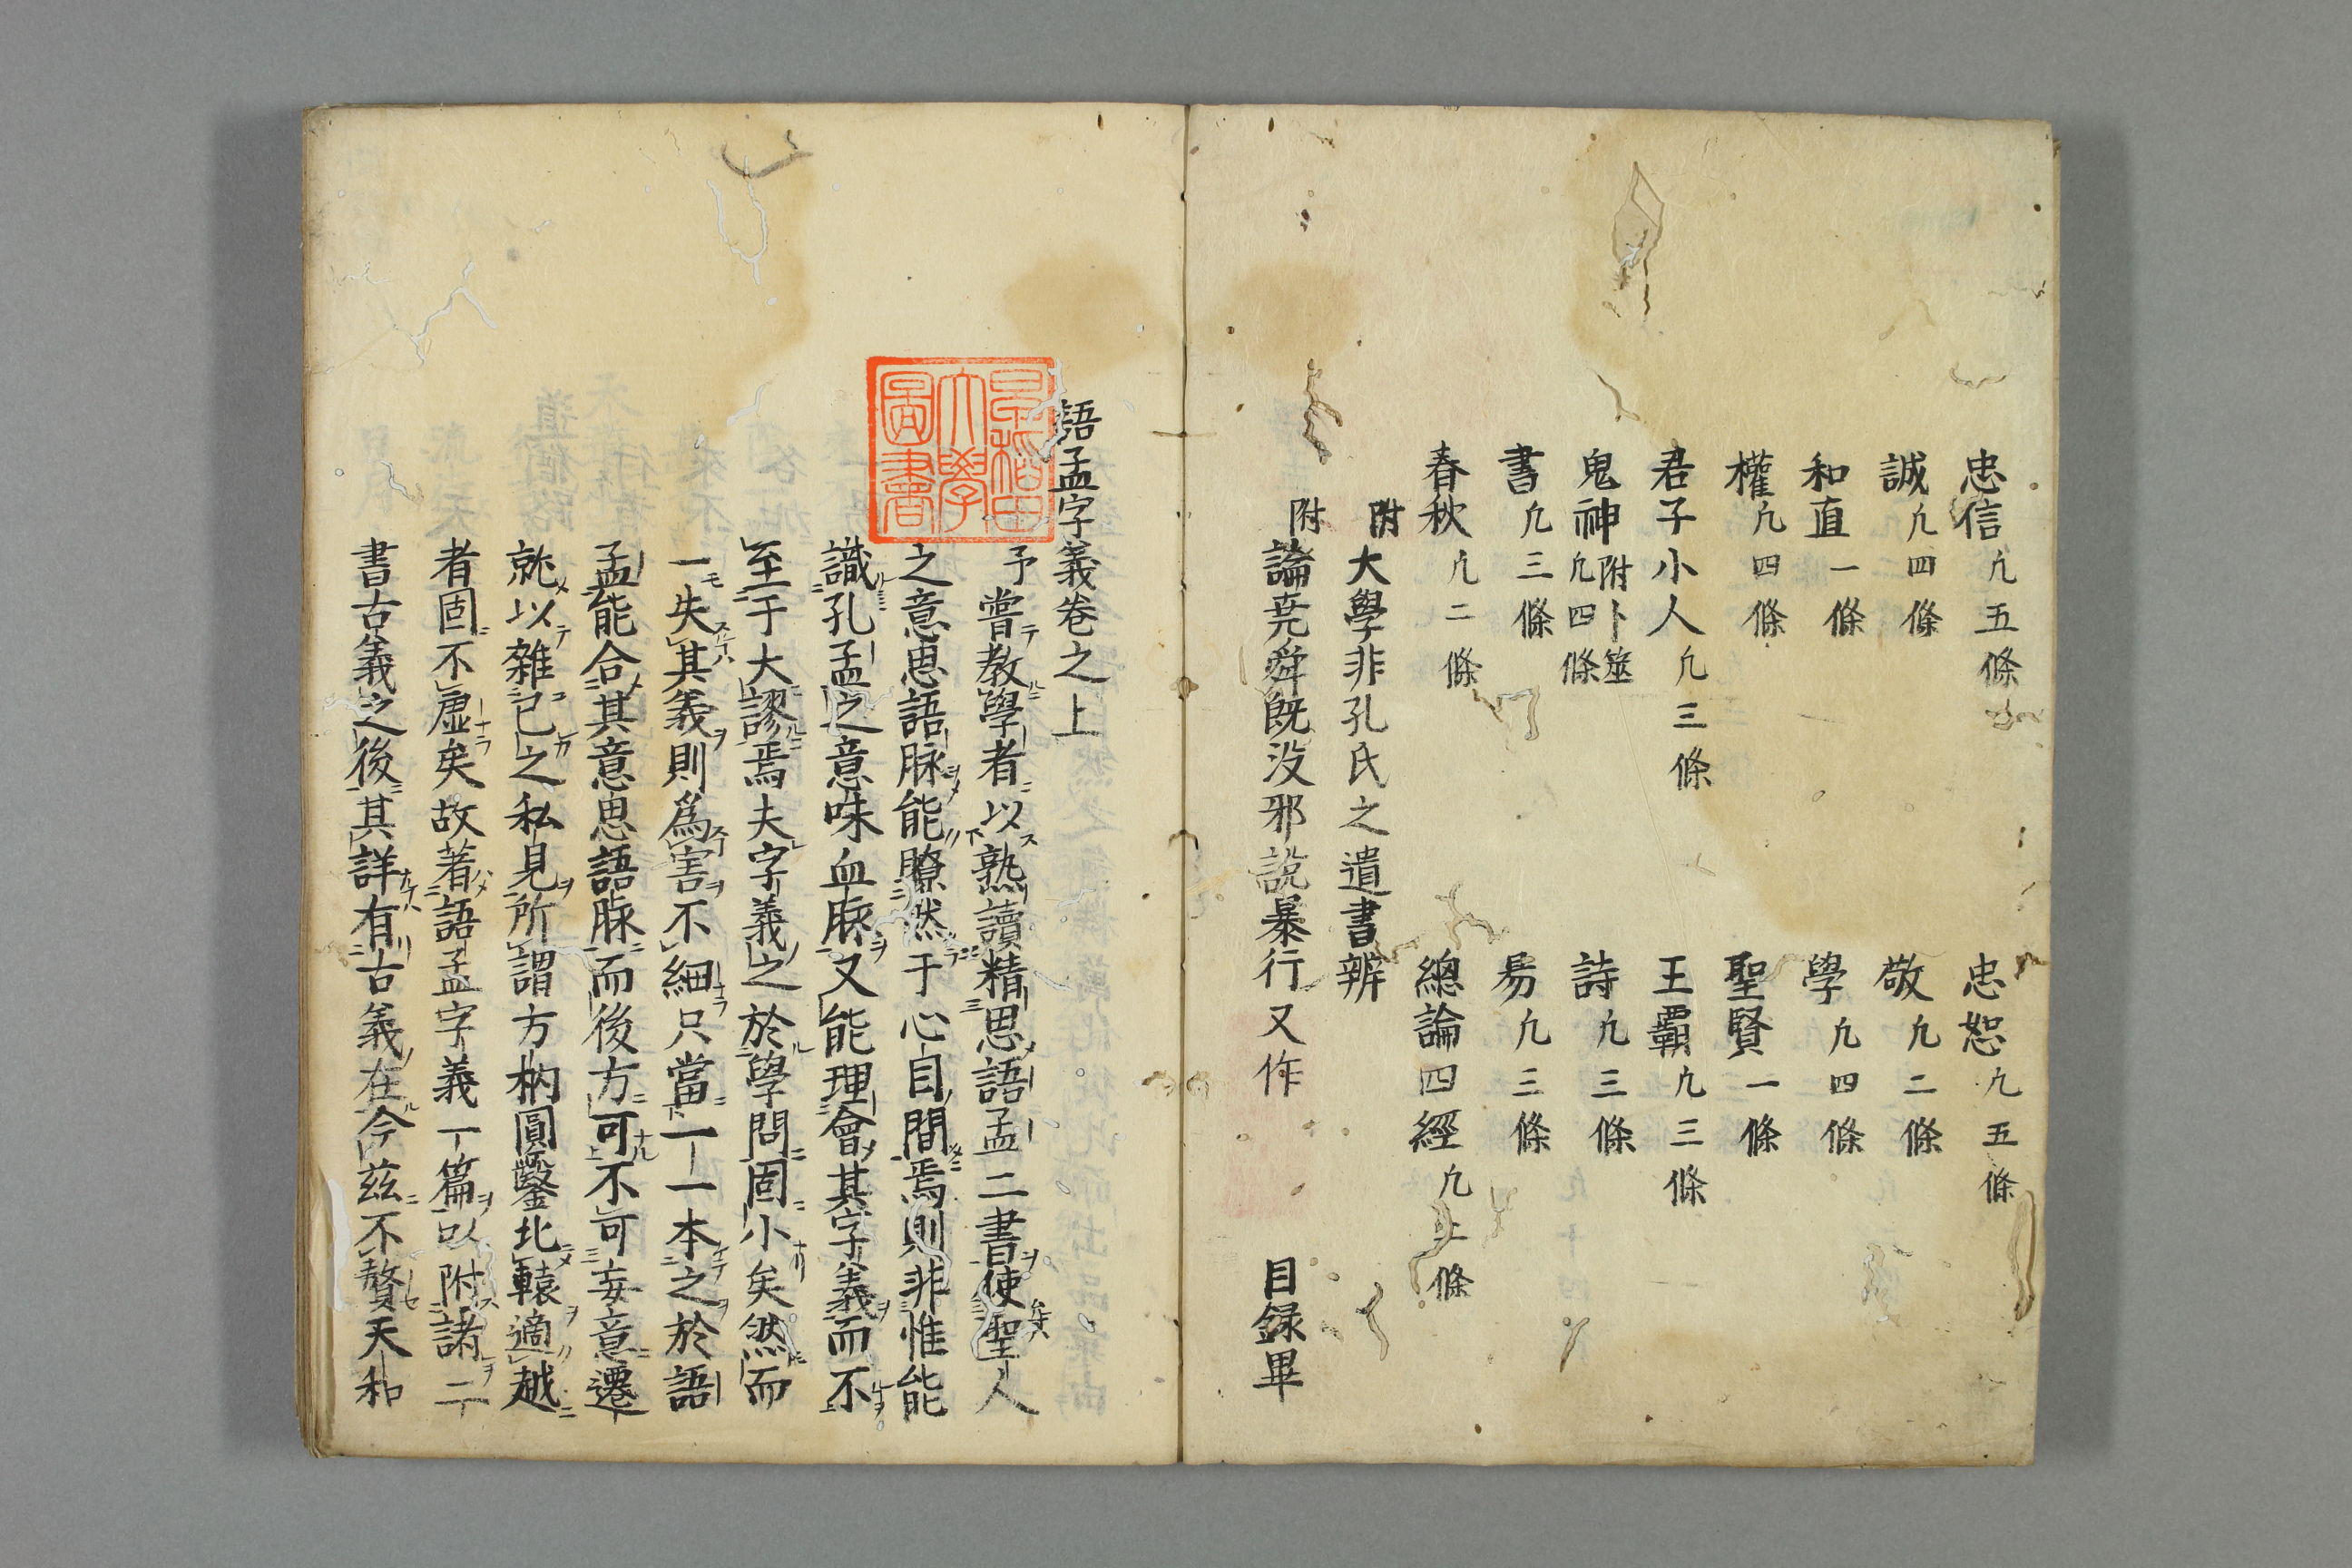 忠信凢五條 忠恕凢五條
誠凢四條 敬凢二條
和直一條 學凢四條
權凢四條 聖賢一條
君子小人凢三條 王覇凢三條
鬼神附卜筮凢四條 詩凢三條
書凢三條 易凢三條
春秋凢二條 總論四經凢 條
附大學非孔氏之遺書辨
附論尭舜既没邪說暴行又作 目録畢
語孟字義卷之上
予嘗教學者以熟讀精思語孟二書使聖人
之意思語脉能瞭然于心目間焉則非惟能
識孔孟之意味血脉又能理會其字義而不
至于大謬焉夫字義之於學問固小矣然而
一失其義則爲害不細只當一一本之於語
孟能合其意思語脉而後方可不可妄意遷
就以雜己之私見所謂方枘圓鑿北轅適越
者固不虛矣故著語孟字義一篇以附諸二
書古義之後其詳有古義在今玆不贅天和
早稻田大學圖書